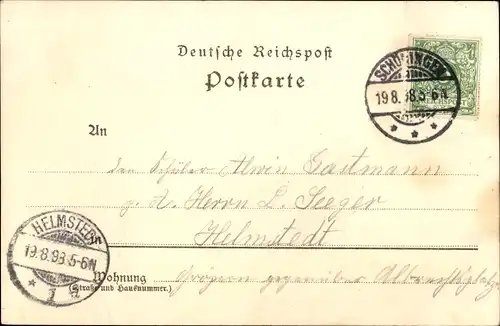 Deutsche Reichspost
Postkarte
SCHÖNINGEN
19 8. 98. 5-6N
REICHSPOST
An
den Schüler Alwin Gastmann
p. A. Herrn L. Seeger
in Helmstedt
HELMSTEDT
19.8.98.5-6N
Wohnung
(Straße und Hausnummer.)
gegenüber